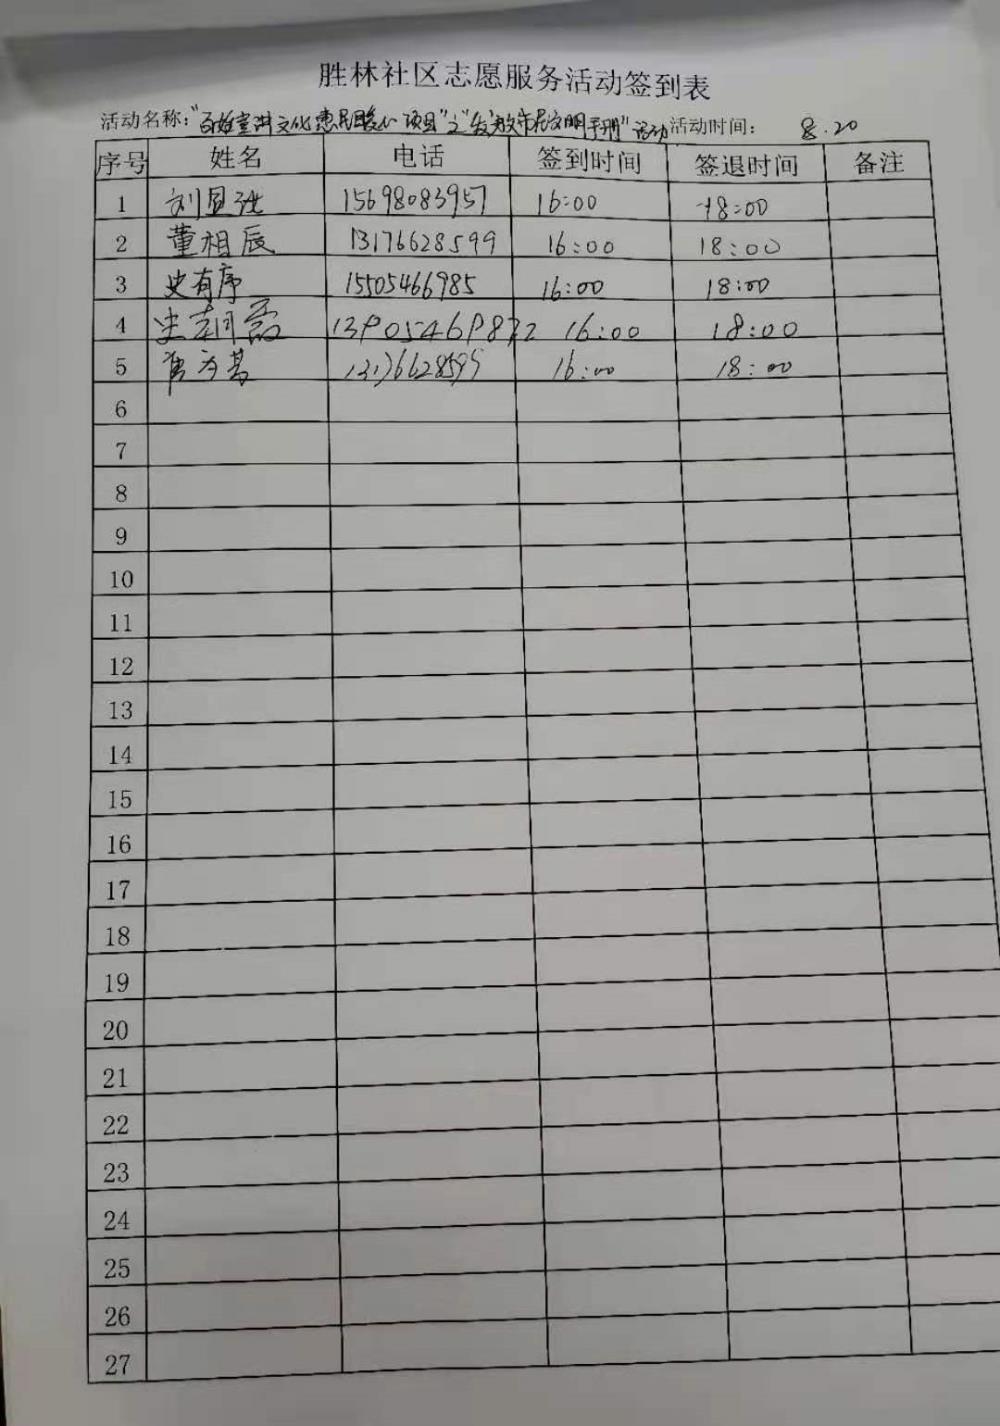 胜林社区志愿服务活动签到表
活动名称："百姓宣讲文化惠民暖心项目"之"发放市民文明手册"活动 活动时间： 8.20
序号 姓名 电话 签到时间 签退时间 备注
1 刘显 15698083957 16:00 18:00
2 董相辰 13176628599 16:00 18:00
3 史有序 15505466985 16:00 18:00
4 史 霞 16:00 18:00
5 13176628599 16:00 18:00
6
7
8
9
10
11
12
13
14
15
16
17
18
19
20
21
22
23
24
25
26
27